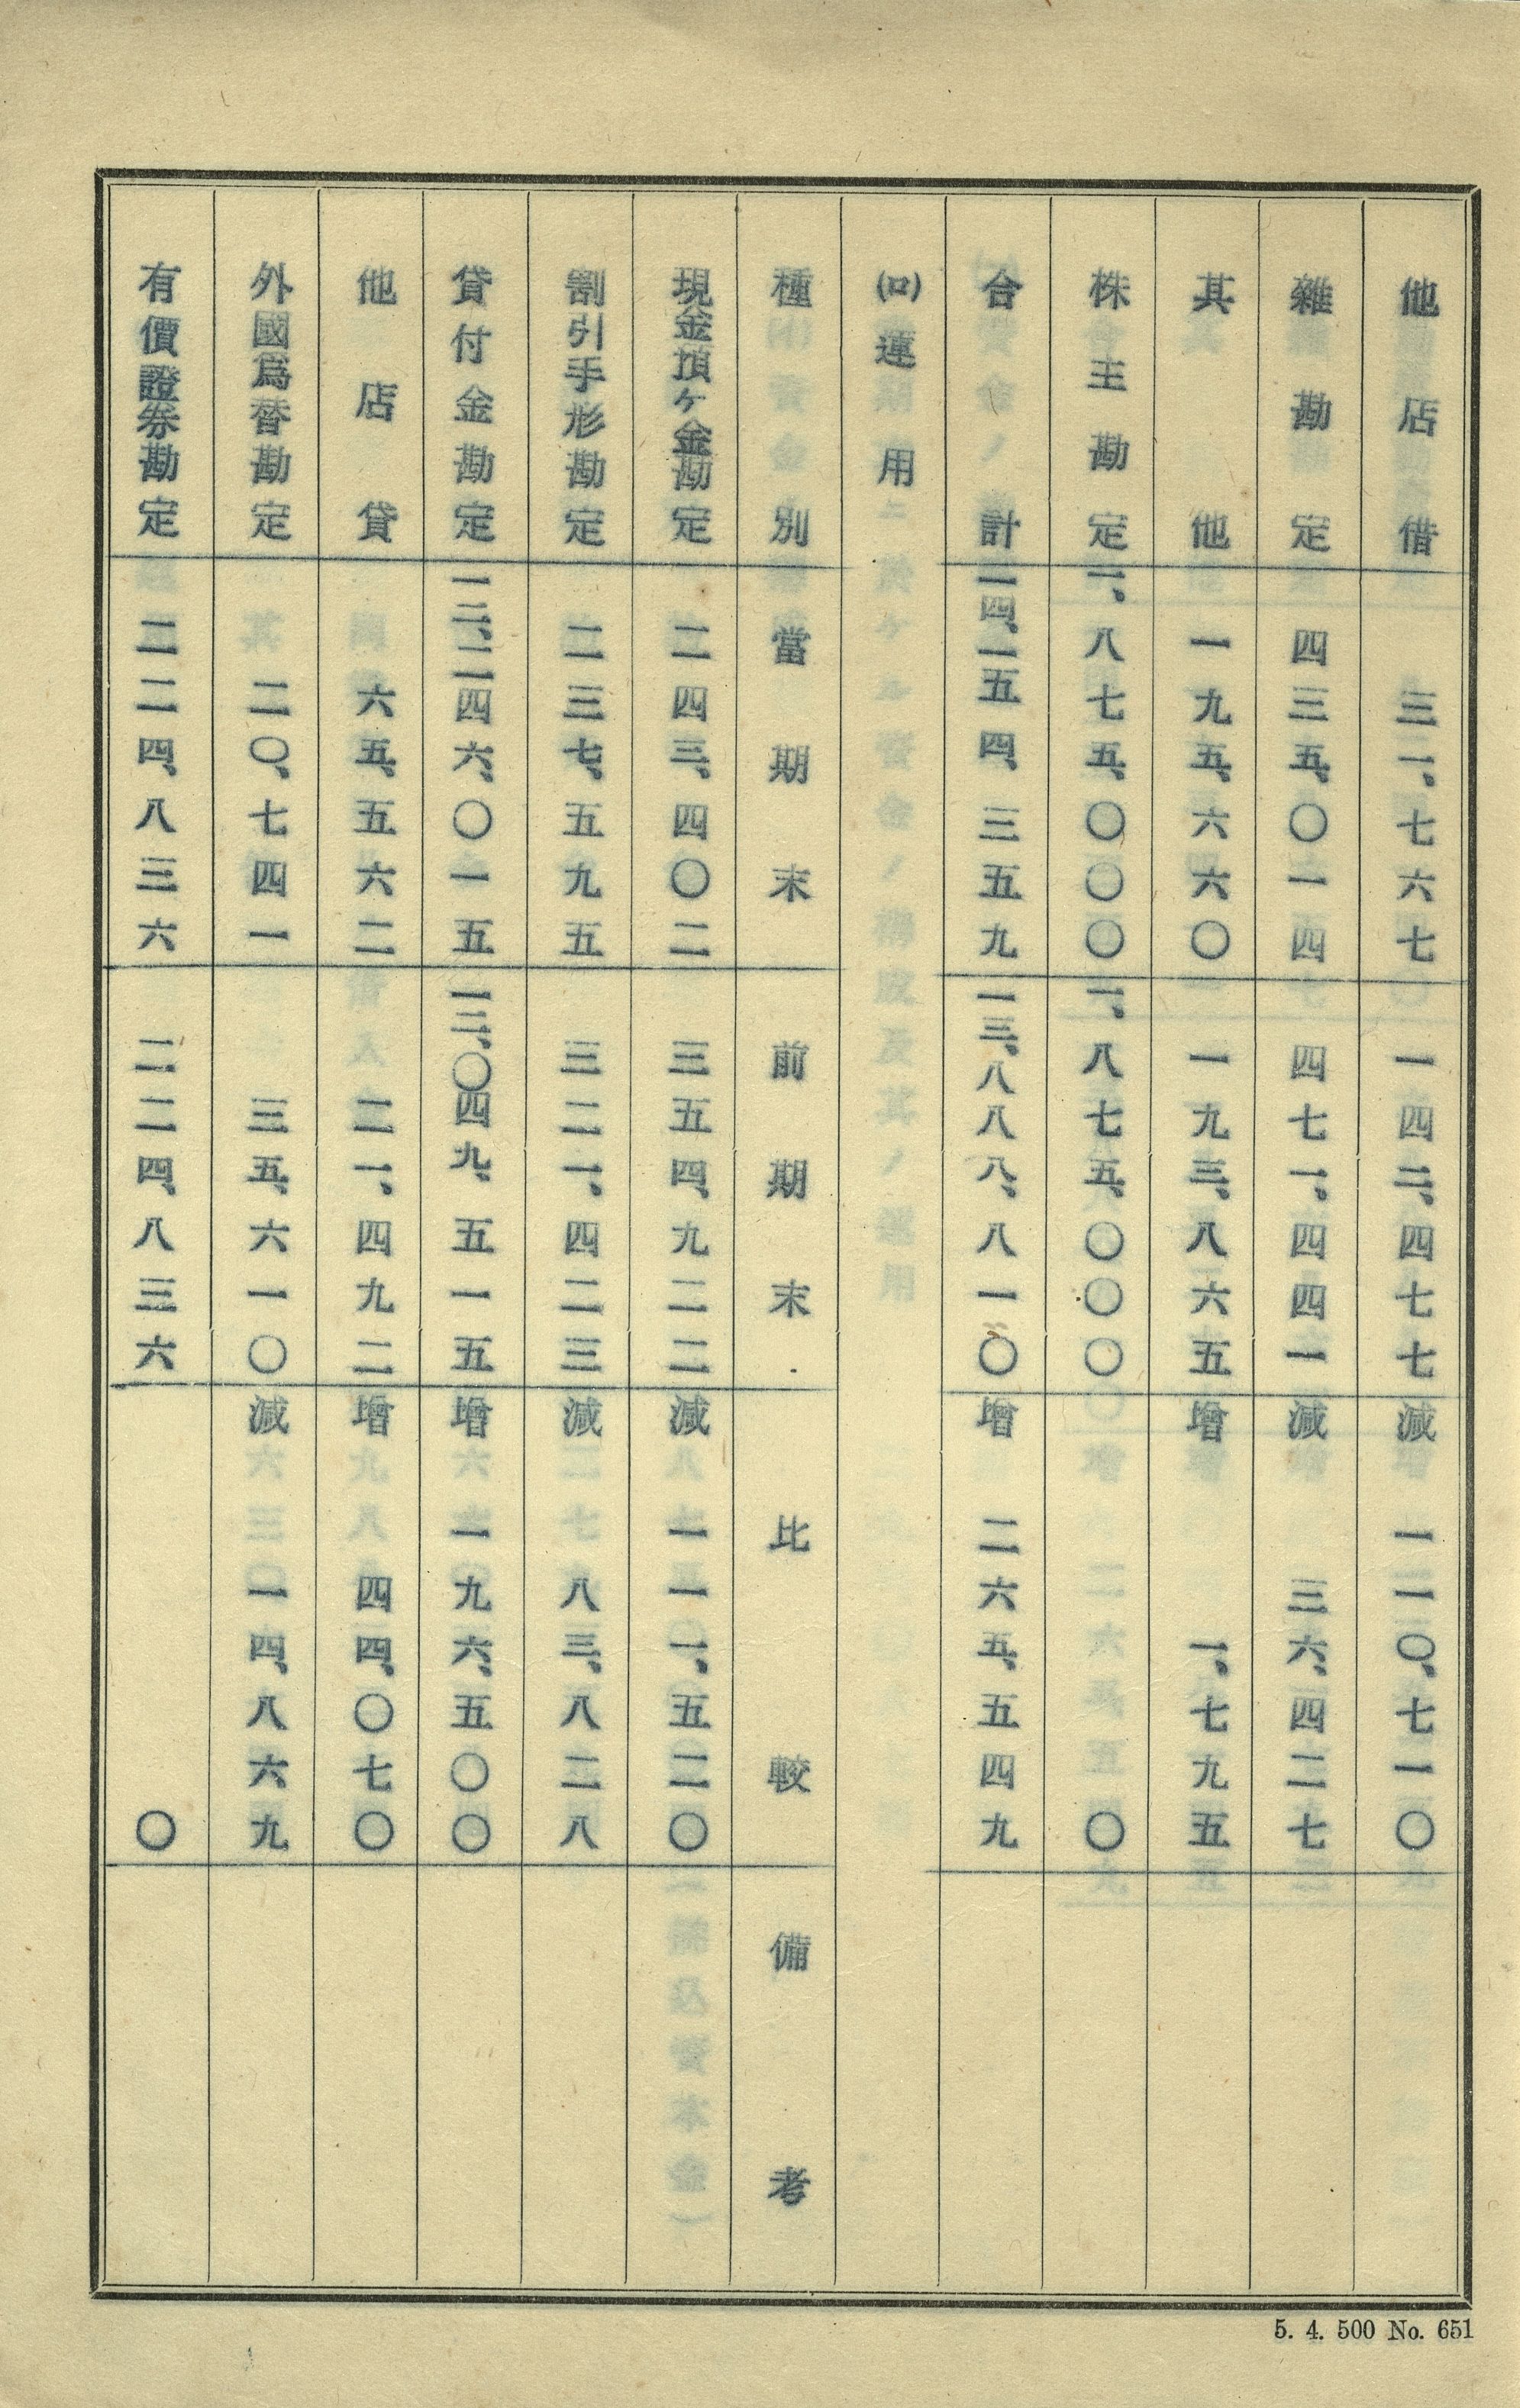 他店借 三一、七六七 一四二、四七七 減 一一〇、七一〇
雜勘定 四三五、〇一四 四七一、四四一 減 三六、四二七
其他 一九五、六六〇 一九三、八六五 增 一、七九五
株主勘定 一、八七五、〇〇〇 一、八七五、〇〇〇 〇
合計 一四、一五四、三五九 一三、八八八、八一〇 增 二六五、五四九
(ロ)運用
種別 當期末 前期末 比較 備考
現金預ケ金勘定 二四三、四〇二 三五四、九二二 減 一一一、五二〇
割引手形勘定 二三七、五九五 三二一、四二三 減 八三、八二八
貸付金勘定 一二、二四六、〇一五 一二、〇四九、五一五 增 一九六、五〇〇
他店貸 六五、五六二 二一、四九二 增 四四、〇七〇
外國爲替勘定 二〇、七四一 三五、六一〇 減 一四、八六九
有價證券勘定 二二四、八三六 二二四、八三六 〇
5. 4. 500 No. 651